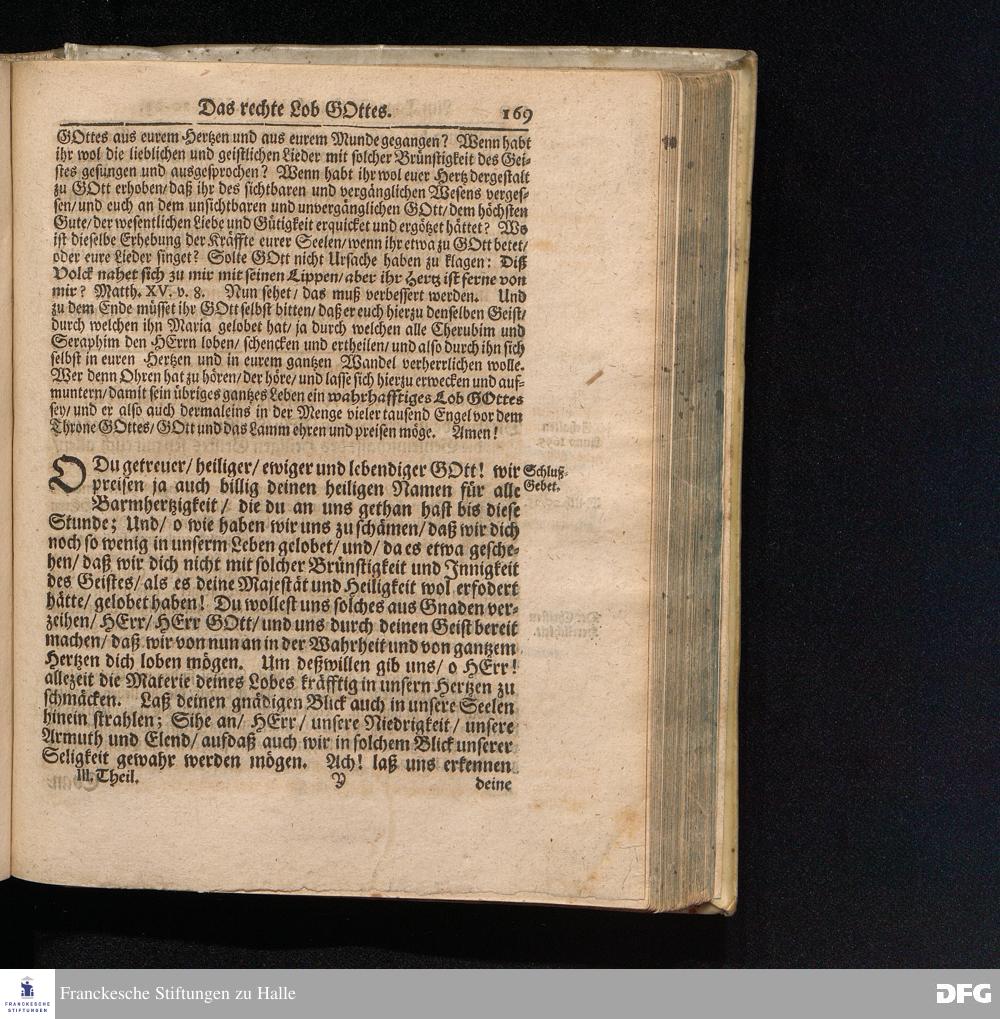 Das rechte Lob GOttes. 169
GOttes aus eurem Hertzen und aus eurem Munde gegangen? Wenn habt
ihr wol die lieblichen und geistlichen Lieder mit solcher Brünstigkeit des Gei-
stes gesungen und ausgesprochen? Wenn habt ihr wol euer Hertz dergestalt
zu GOtt erhoben/ daß ihr des sichtbaren und vergänglichen Wesens verges-
sen/ und euch an dem unsichtbaren und unvergänglichen GOtt/ dem höchsten
Gute/ der wesentlichen Liebe und Gütigkeit erquicket und ergötzet hättet? Wo
ist dieselbe Erhebung der Kräffte eurer Seelen/ wenn ihr etwa zu GOtt betet/
oder eure Lieder singet? Solte GOtt nicht Ursache haben zu klagen: Diß
Volck nahet sich zu mir mit seinen Lippen/ aber ihr Hertz ist ferne von
mir? Matth. XV. v. 8. Nun sehet/ das muß verbessert werden. Und
zu dem Ende müsset ihr GOtt selbst bitten/ daß er euch hierzu denselben Geist/
durch welchen ihn Maria gelobet hat/ ja durch welchen alle Cherubim und
Seraphim den HErrn loben/ schencken und ertheilen/ und also durch ihn sich
selbst in euren Hertzen und in eurem gantzen Wandel verherrlichen wolle.
Wer denn Ohren hat zu hören/ der höre/ und lasse sich hierzu erwecken und auf-
muntern/ damit sein übriges gantzes Leben ein wahrhafftiges Lob GOttes
sey/ und er also auch dermaleins in der Menge vieler tausend Engel vor dem
Throne GOttes/ GOtt und das Lamm ehren und preisen möge. Amen!
O Du getreuer/ heiliger/ ewiger und lebendiger GOtt! wir
preisen ja auch billig deinen heiligen Namen für alle
Barmhertzigkeit/ die du an uns gethan hast bis diese
Stunde; Und/ o wie haben wir uns zu schämen/ daß wir dich
noch so wenig in unserm Leben gelobet/ und/ da es etwa gesche-
hen/ daß wir dich nicht mit solcher Brünstigkeit und Innigkeit
des Geistes/ als es deine Majestät und Heiligkeit wol erfodert
hätte/ gelobet haben! Du wollest uns solches aus Gnaden ver-
zeihen/ HErr/ HErr GOtt/ und uns durch deinen Geist bereit
machen/ daß wir von nun an in der Wahrheit und von gantzem
Hertzen dich loben mögen. Um deßwillen gib uns/ o HErr!
allezeit die Materie deines Lobes kräfftig in unsern Hertzen zu
schmäcken. Laß deinen gnädigen Blick auch in unsere Seelen
hinein strahlen; Sihe an/ HErr/ unsere Niedrigkeit/ unsere
Armuth und Elend/ aufdaß auch wir in solchem Blick unserer
Seligkeit gewahr werden mögen. Ach! laß uns erkennen
Schluß-
Gebet.
III. Theil. Y deine
FRANCKESCHE
STIFTUNGEN
Franckesche Stiftungen zu Halle
DFG